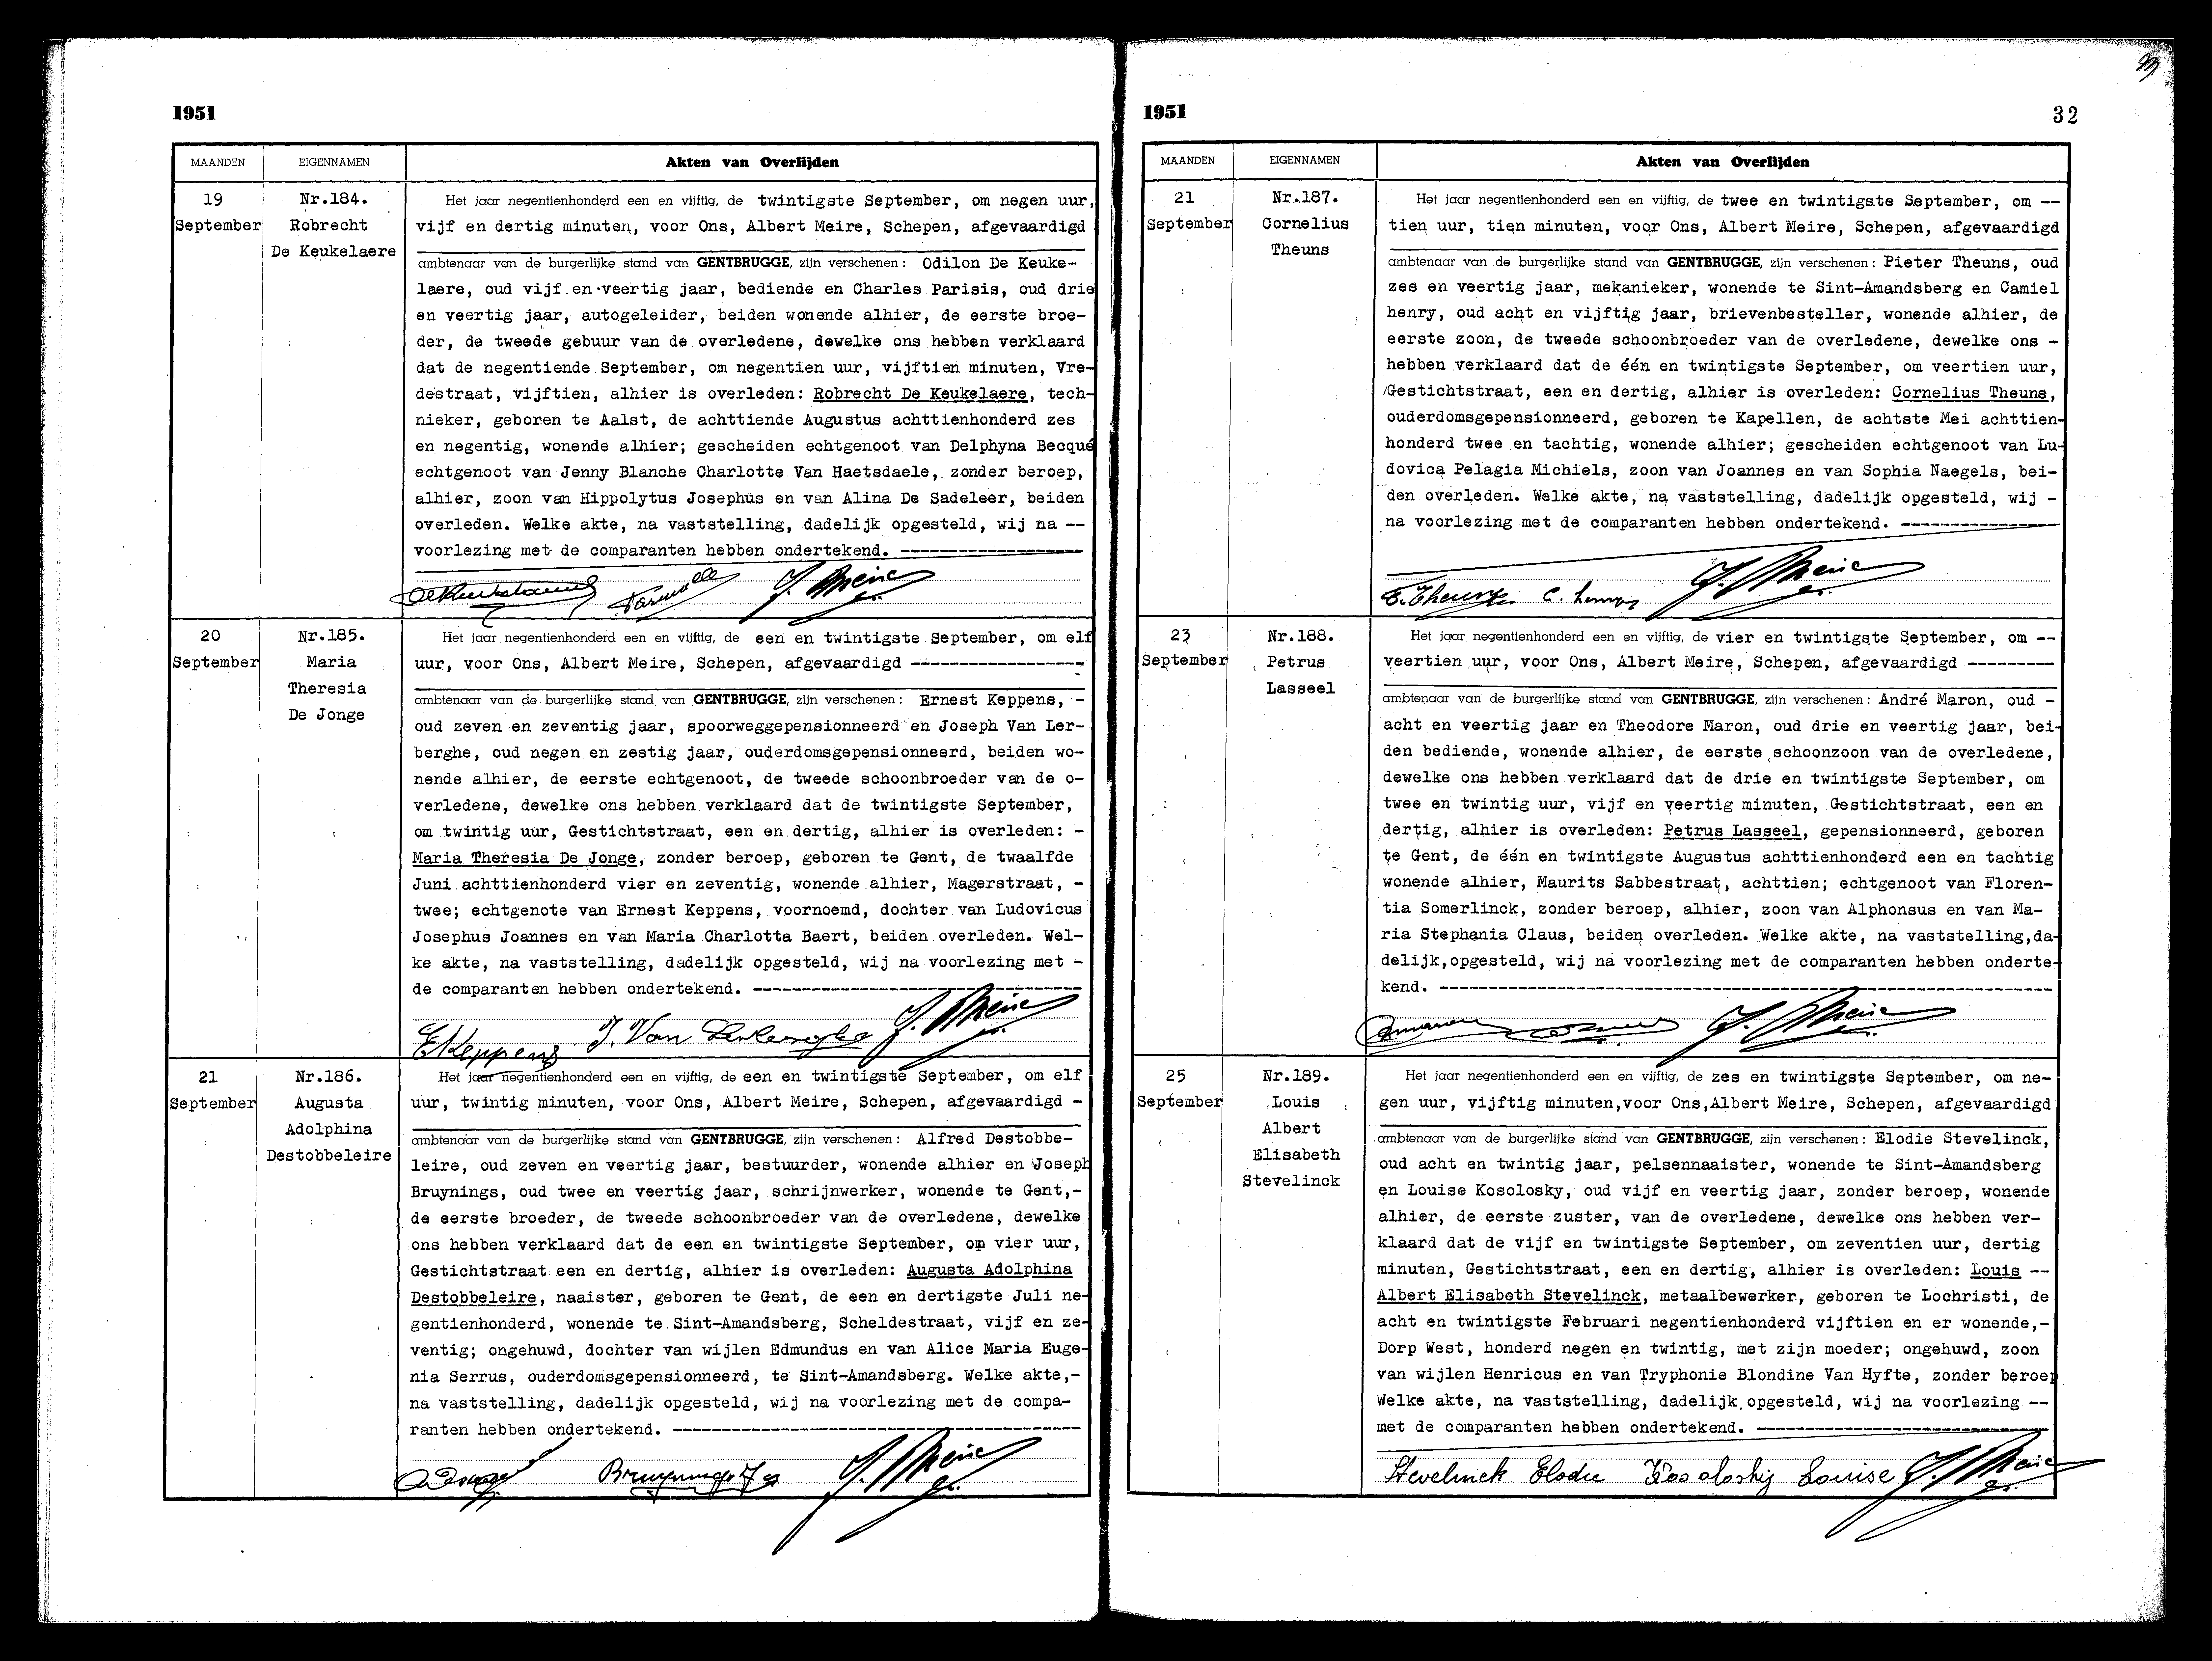 1951
MAANDEN EIGENNAMEN Akten van Overlijden
19
September
Nr.184.
Robrecht
De Keukelaere
Het jaar negentienhonderd een en vijftig, de twintigste September, om negen uur,
vijf en dertig minuten, voor Ons, Albert Meire, Schepen, afgevaardigd
ambtenaar van de burgerlijke stand van GENTBRUGGE, zijn verschenen: Odilon De Keuke-
laere, oud vijf en veertig jaar, bediende en Charles Parisis, oud drie
en veertig jaar, autogeleider, beiden wonende alhier, de eerste broe-
der, de tweede gebuur van de overledene, dewelke ons hebben verklaard
dat de negentiende September, om negentien uur, vijftien minuten, Vre-
destraat, vijftien, alhier is overleden: Robrecht De Keukelaere, tech-
nieker, geboren te Aalst, de achttiende Augustus achttienhonderd zes
en negentig, wonende alhier; gescheiden echtgenoot van Delphyna Becqué
echtgenoot van Jenny Blanche Charlotte Van Haetsdaele, zonder beroep,
alhier, zoon van Hippolytus Josephus en van Alina De Sadeleer, beiden
overleden. Welke akte, na vaststelling, dadelijk opgesteld, wij na --
voorlezing met de comparanten hebben ondertekend. --------------------
20
September
Nr.185.
Maria
Theresia
De Jonge
Het jaar negentienhonderd een en vijftig, de een en twintigste September, om elf
uur, voor Ons, Albert Meire, Schepen, afgevaardigd ------------------
ambtenaar van de burgerlijke stand van GENTBRUGGE, zijn verschenen: Ernest Keppens, -
oud zeven en zeventig jaar, spoorweggepensionneerd en Joseph Van Ler-
berghe, oud negen en zestig jaar, ouderdomsgepensionneerd, beiden wo-
nende alhier, de eerste echtgenoot, de tweede schoonbroeder van de o-
verledene, dewelke ons hebben verklaard dat de twintigste September,
om twintig uur, Gestichtstraat, een en dertig, alhier is overleden: -
Maria Theresia De Jonge, zonder beroep, geboren te Gent, de twaalfde
Juni achttienhonderd vier en zeventig, wonende alhier, Magerstraat, -
twee; echtgenote van Ernest Keppens, voornoemd, dochter van Ludovicus
Josephus Joannes en van Maria Charlotta Baert, beiden overleden. Wel-
ke akte, na vaststelling, dadelijk opgesteld, wij na voorlezing met -
de comparanten hebben ondertekend. ----------------------------------
EKeppens J. Van Lerberghe
21
September
Nr.186.
Augusta
Adolphina
Destobbeleire
Het jaar negentienhonderd een en vijftig, de een en twintigste September, om elf
uur, twintig minuten, voor Ons, Albert Meire, Schepen, afgevaardigd -
ambtenaar van de burgerlijke stand van GENTBRUGGE, zijn verschenen: Alfred Destobbe-
leire, oud zeven en veertig jaar, bestuurder, wonende alhier en Joseph
Bruynings, oud twee en veertig jaar, schrijnwerker, wonende te Gent,-
de eerste broeder, de tweede schoonbroeder van de overledene, dewelke
ons hebben verklaard dat de een en twintigste September, om vier uur,
Gestichtstraat een en dertig, alhier is overleden: Augusta Adolphina
Destobbeleire, naaister, geboren te Gent, de een en dertigste Juli ne-
gentienhonderd, wonende te Sint-Amandsberg, Scheldestraat, vijf en ze-
ventig; ongehuwd, dochter van wijlen Edmundus en van Alice Maria Euge-
nia Serrus, ouderdomsgepensionneerd, te Sint-Amandsberg. Welke akte,-
na vaststelling, dadelijk opgesteld, wij na voorlezing met de compa-
ranten hebben ondertekend. ------------------------------------------
1951 32
MAANDEN EIGENNAMEN Akten van Overlijden
21
September
Nr.187.
Cornelius
Theuns
Het jaar negentienhonderd een en vijftig, de twee en twintigste September, om --
tien uur, tien minuten, voor Ons, Albert Meire, Schepen, afgevaardigd
ambtenaar van de burgerlijke stand van GENTBRUGGE, zijn verschenen: Pieter Theuns, oud
zes en veertig jaar, mekanieker, wonende te Sint-Amandsberg en Camiel
henry, oud acht en vijftig jaar, brievenbesteller, wonende alhier, de
eerste zoon, de tweede schoonbroeder van de overledene, dewelke ons -
hebben verklaard dat de één en twintigste September, om veertien uur,
Gestichtstraat, een en dertig, alhier is overleden: Cornelius Theuns,
ouderdomsgepensionneerd, geboren te Kapellen, de achtste Mei achttien-
honderd twee en tachtig, wonende alhier; gescheiden echtgenoot van Lu-
dovica Pelagia Michiels, zoon van Joannes en van Sophia Naegels, bei-
den overleden. Welke akte, na vaststelling, dadelijk opgesteld, wij -
na voorlezing met de comparanten hebben ondertekend. ----------------
23
September
Nr.188.
Petrus
Lasseel
Het jaar negentienhonderd een en vijftig, de vier en twintigste September, om --
veertien uur, voor Ons, Albert Meire, Schepen, afgevaardigd ---------
ambtenaar van de burgerlijke stand van GENTBRUGGE, zijn verschenen: André Maron, oud -
acht en veertig jaar en Theodore Maron, oud drie en veertig jaar, bei-
den bediende, wonende alhier, de eerste schoonzoon van de overledene,
dewelke ons hebben verklaard dat de drie en twintigste September, om
twee en twintig uur, vijf en veertig minuten, Gestichtstraat, een en
dertig, alhier is overleden: Petrus Lasseel, gepensionneerd, geboren
te Gent, de één en twintigste Augustus achttienhonderd een en tachtig
wonende alhier, Maurits Sabbestraat, achttien; echtgenoot van Floren-
tia Somerlinck, zonder beroep, alhier, zoon van Alphonsus en van Ma-
ria Stephania Claus, beiden overleden. Welke akte, na vaststelling,da-
delijk,opgesteld, wij na voorlezing met de comparanten hebben onderte-
kend. ---------------------------------------------------------------
25
September
Nr.189.
Louis
Albert
Elisabeth
Stevelinck
Het jaar negentienhonderd een en vijftig, de zes en twintigste September, om ne-
gen uur, vijftig minuten,voor Ons,Albert Meire, Schepen, afgevaardigd
ambtenaar van de burgerlijke stand van GENTBRUGGE, zijn verschenen: Elodie Stevelinck,
oud acht en twintig jaar, pelsennaaister, wonende te Sint-Amandsberg
en Louise Kosolosky, oud vijf en veertig jaar, zonder beroep, wonende
alhier, de eerste zuster, van de overledene, dewelke ons hebben ver-
klaard dat de vijf en twintigste September, om zeventien uur, dertig
minuten, Gestichtstraat, een en dertig, alhier is overleden: Louis --
Albert Elisabeth Stevelinck, metaalbewerker, geboren te Lochristi, de
acht en twintigste Februari negentienhonderd vijftien en er wonende,-
Dorp West, honderd negen en twintig, met zijn moeder; ongehuwd, zoon
van wijlen Henricus en van Tryphonie Blondine Van Hyfte, zonder beroep
Welke akte, na vaststelling, dadelijk opgesteld, wij na voorlezing --
met de comparanten hebben ondertekend. ------------------------------
Stevelinck Elodie Kosolosky Louise